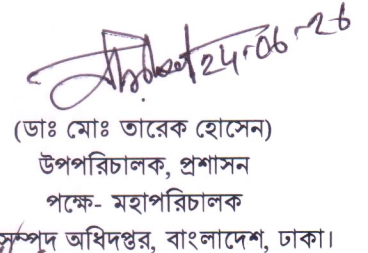 24-06-26
(ডাঃ মোঃ তারেক হোসেন)
উপপরিচালক, প্রশাসন
পক্ষে- মহাপরিচালক
অধিদপ্তর, বাংলাদেশ, ঢাকা।